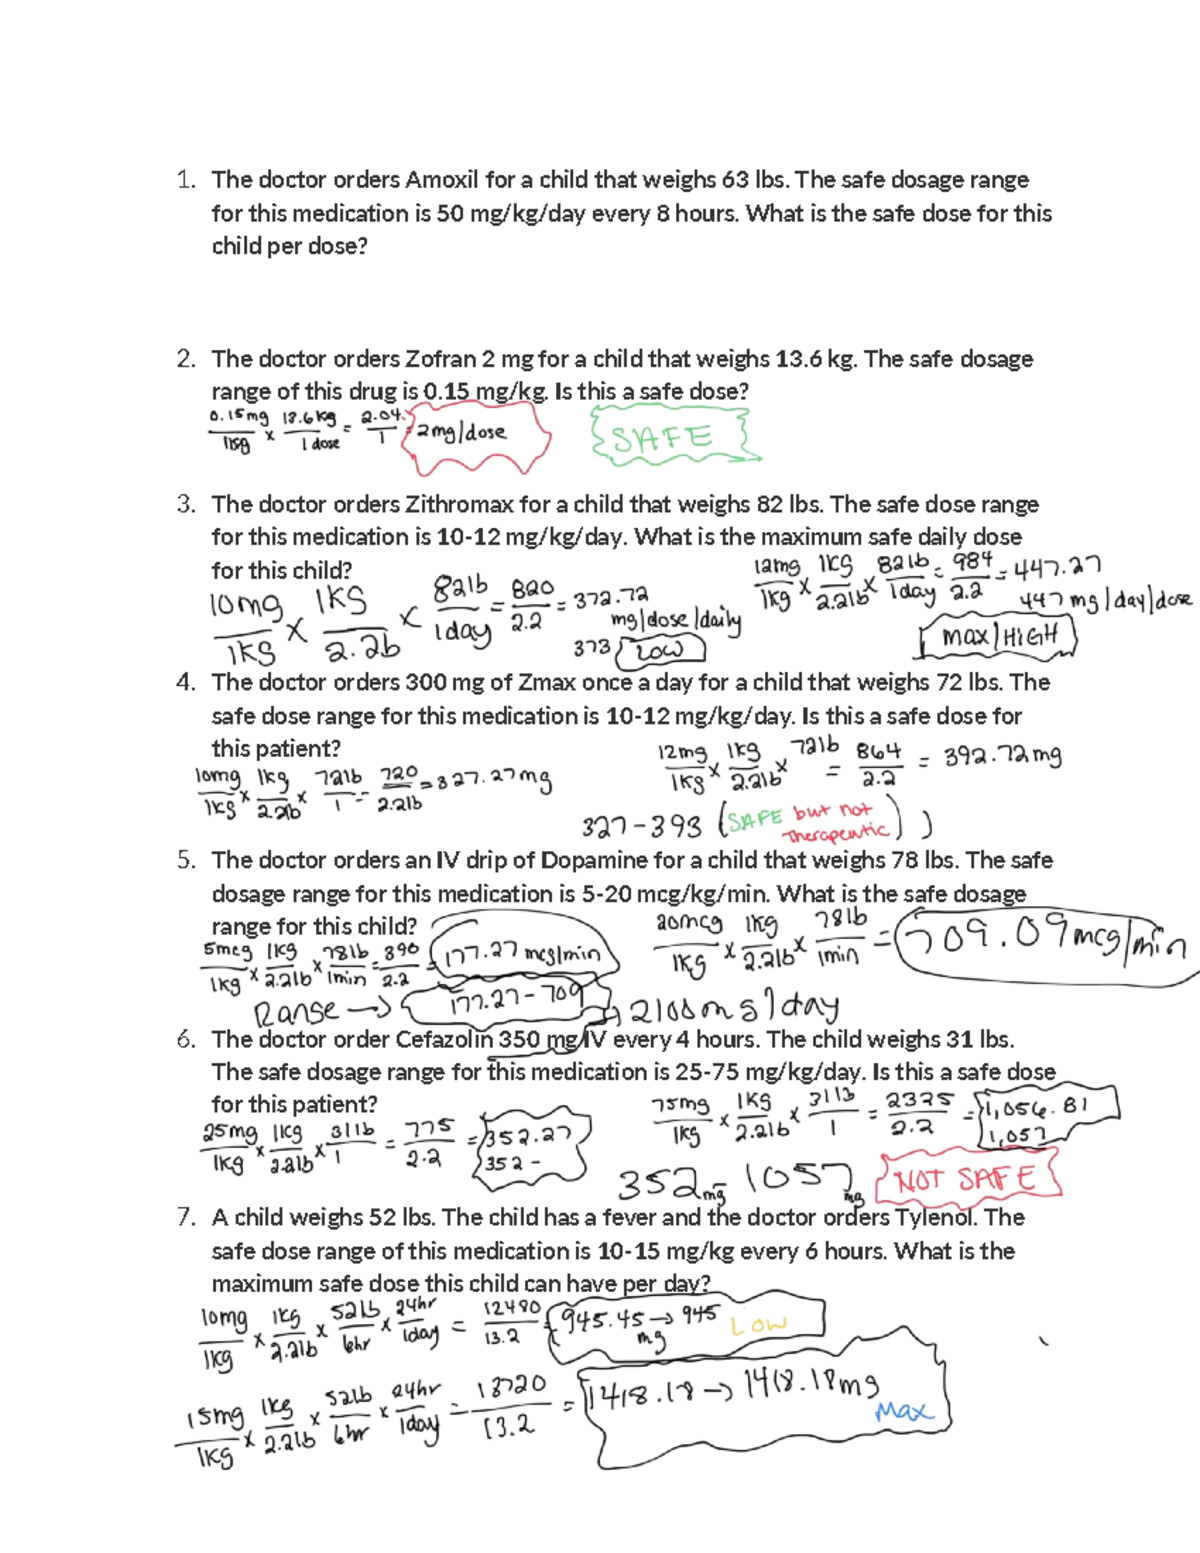 1. The doctor orders Amoxil for a child that weighs 63 lbs. The safe dosage range
for this medication is 50 mg/kg/day every 8 hours. What is the safe dose for this
child per dose?
2. The doctor orders Zofran 2 mg for a child that weighs 13.6 kg. The safe dosage
range of this drug is 0.15 mg/kg. Is this a safe dose?
0.15mg/1kg x 13.6kg/1 dose = 2.04/1 = 2mg/dose
SAFE
3. The doctor orders Zithromax for a child that weighs 82 lbs. The safe dose range
for this medication is 10-12 mg/kg/day. What is the maximum safe daily dose
for this child?
10mg/1kg x 1kg/2.2lb x 82lb/1day = 820/2.2 = 372.72
mg/dose/daily
373 LOW
12mg/1kg x 1kg/2.2lb x 82lb/1day = 984/2.2 = 447.27
447 mg/day/dose
max/HIGH
4. The doctor orders 300 mg of Zmax once a day for a child that weighs 72 lbs. The
safe dose range for this medication is 10-12 mg/kg/day. Is this a safe dose for
this patient?
10mg/1kg x 1kg/2.2lb x 72lb/1 = 720/2.2lb = 327.27mg
12mg/1kg x 1kg/2.2lb x 72lb = 864/2.2 = 392.72mg
327-393 (SAFE but not
Therapeutic))
5. The doctor orders an IV drip of Dopamine for a child that weighs 78 lbs. The safe
dosage range for this medication is 5-20 mcg/kg/min. What is the safe dosage
range for this child?
5mcg/1kg x 1kg/2.2lb x 78lb/1min = 390/2.2 = 177.27 mcg/min
20mcg/1kg x 1kg/2.2lb x 78lb/1min = 709.09mcg/min
Range → 177.27-709
→ 2100mg/day
6. The doctor order Cefazolin 350 mg IV every 4 hours. The child weighs 31 lbs.
The safe dosage range for this medication is 25-75 mg/kg/day. Is this a safe dose
for this patient?
25mg/1kg x 1kg/2.2lb x 31lb/1 = 775/2.2 = 352.27
352 -
75mg/1kg x 1kg/2.2lb x 31lb/1 = 2325/2.2 = 1,056.81
1,057
352mg - 1057mg NOT SAFE
7. A child weighs 52 lbs. The child has a fever and the doctor orders Tylenol. The
safe dose range of this medication is 10-15 mg/kg every 6 hours. What is the
maximum safe dose this child can have per day?
10mg/1kg x 1kg/2.2lb x 52lb/6hr x 24hr/1day = 12480/13.2 = 945.45 → 945 LOW
mg
15mg/1kg x 1kg/2.2lb x 52lb/6hr x 24hr/1day = 18720/13.2 = 1418.18 → 1418.18mg
Max